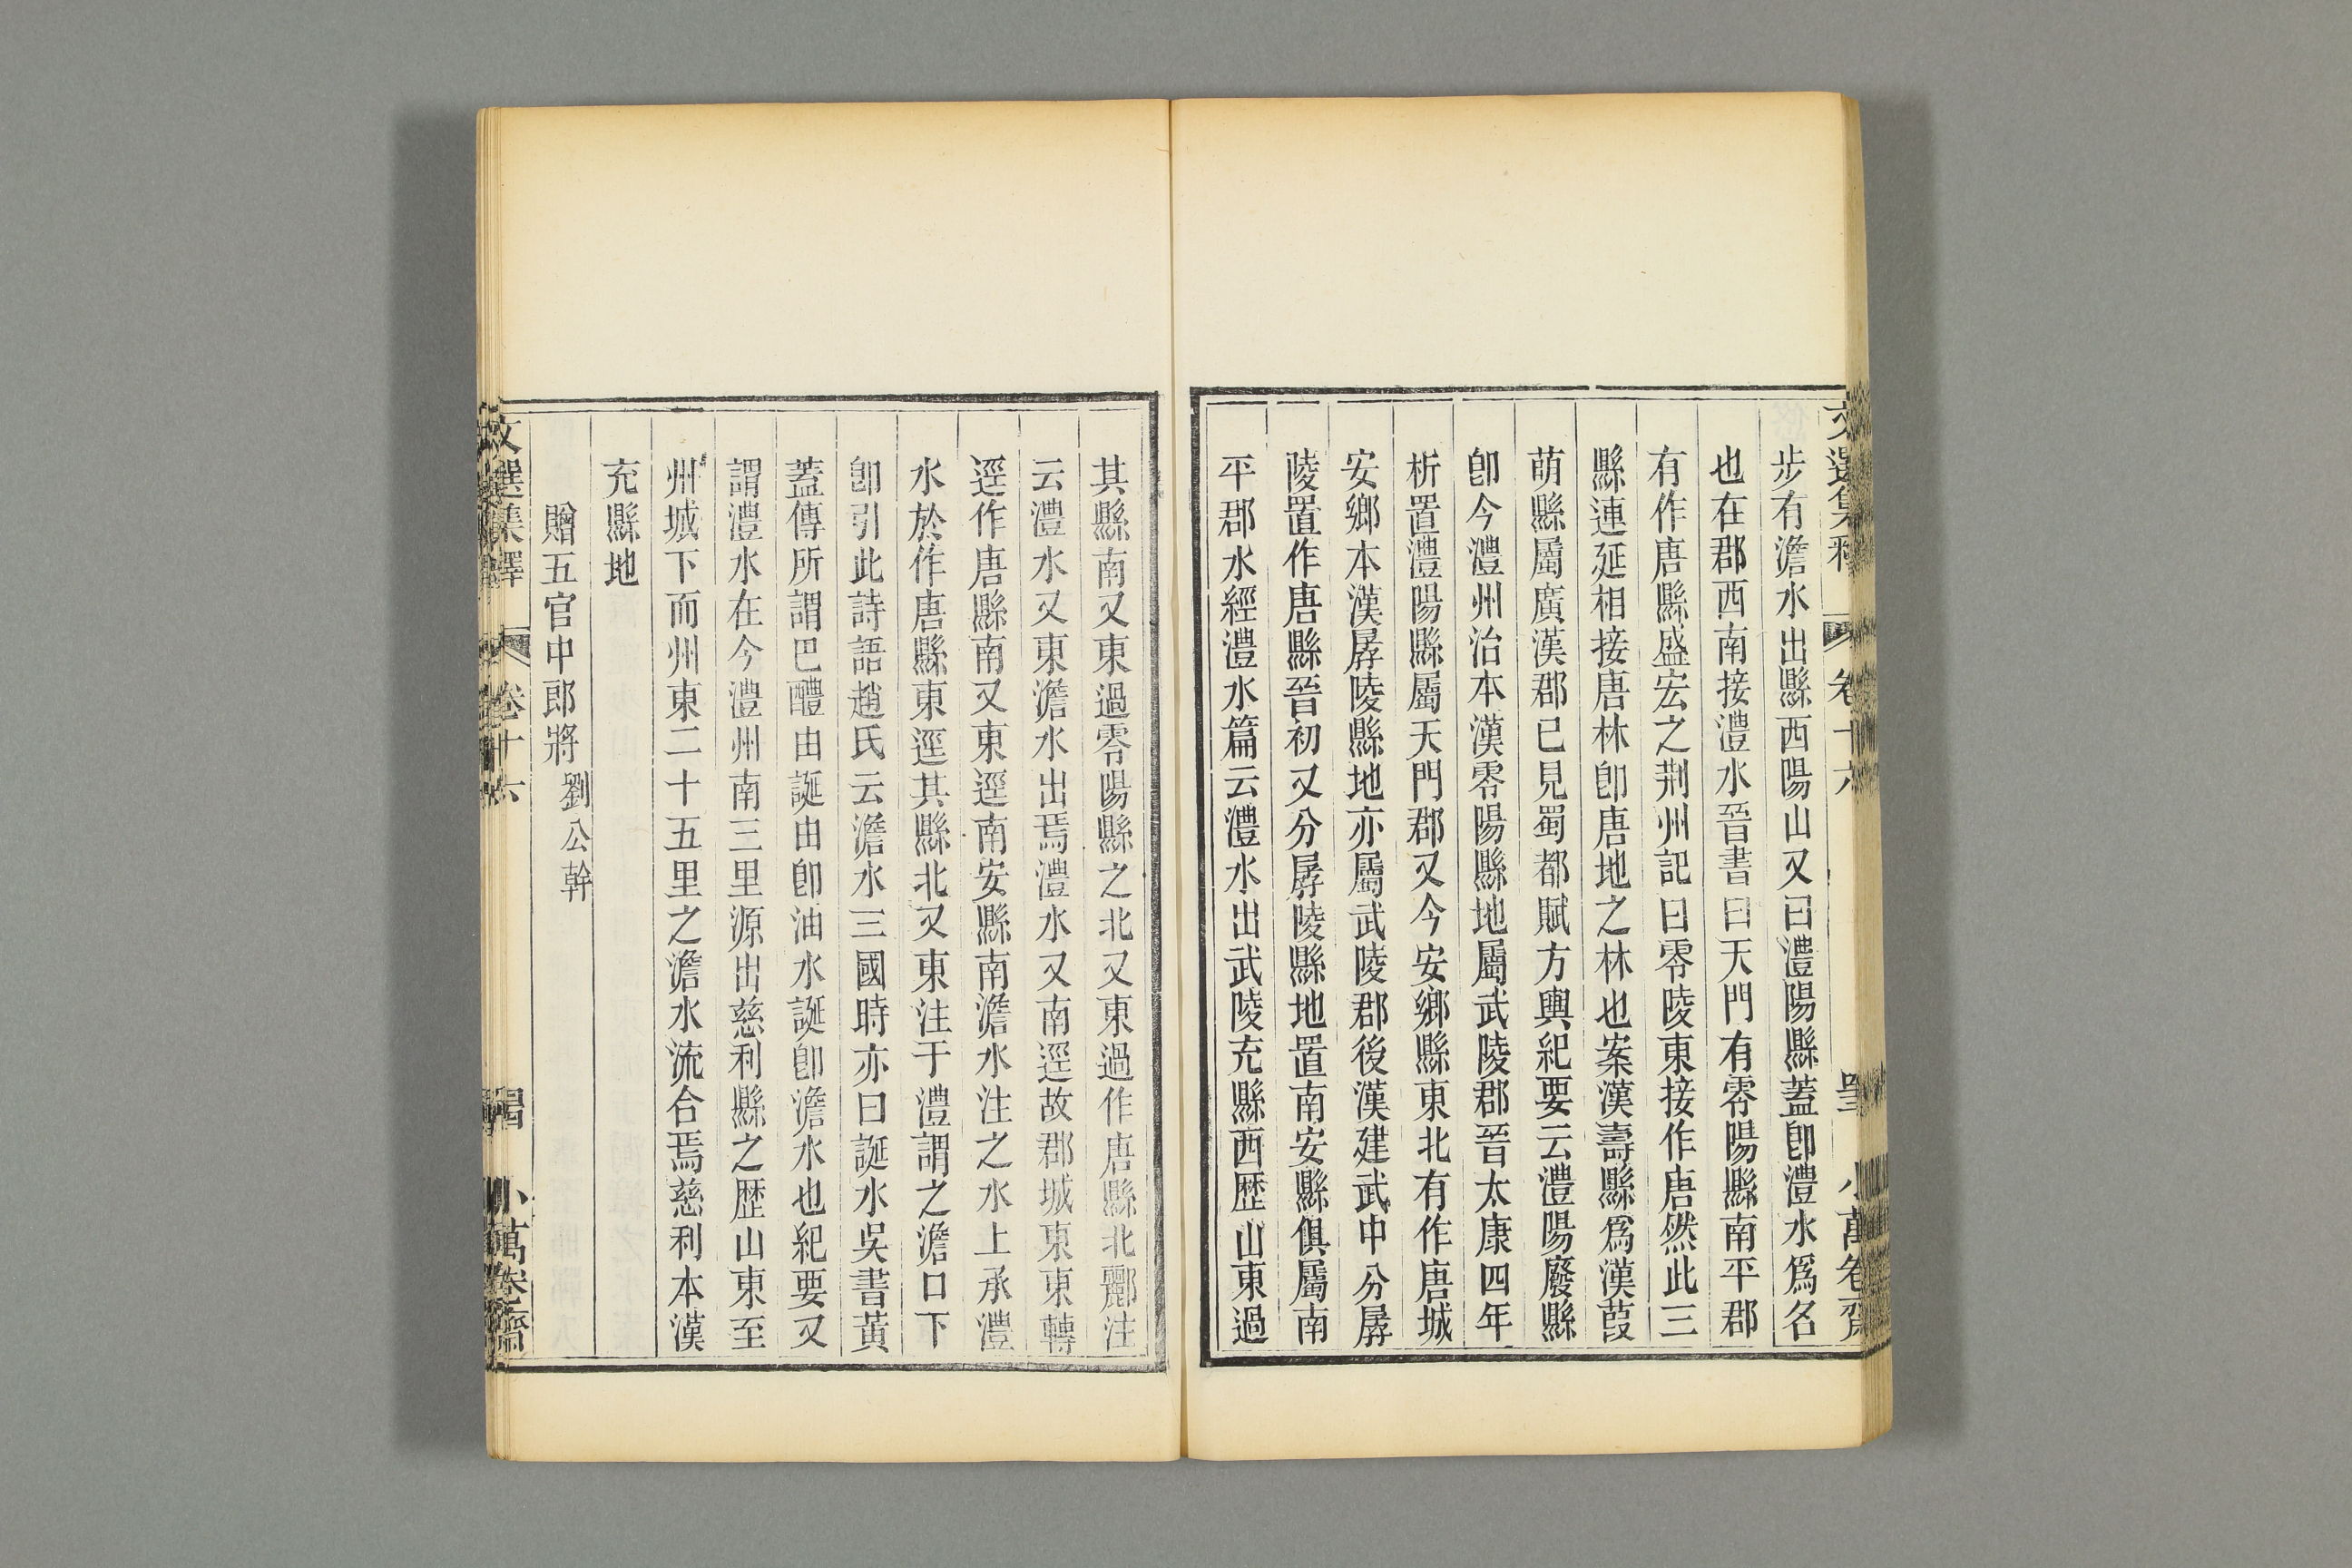 步有澹水出縣西陽山又曰澧陽縣蓋卽澧水爲名
也在郡西南接澧水晉書曰天門有零陽縣南平郡
有作唐縣盛宏之荆州記曰零陵東接作唐然此三
縣連延相接唐林卽唐地之林也案漢壽縣爲漢葭
萌縣屬廣漢郡已見蜀都賦方輿紀要云澧陽廢縣
卽今澧州治本漢零陽縣地屬武陵郡晉太康四年
析置澧陽縣屬天門郡又今安鄉縣東北有作唐城
安鄉本漢孱陵縣地亦屬武陵郡後漢建武中分孱
陵置作唐縣晉初又分孱陵縣地置南安縣俱屬南
平郡水經澧水篇云澧水出武陵充縣西歷山東過
其縣南又東過零陽縣之北又東過作唐縣北酈注
云澧水又東澹水出焉澧水又南逕故郡城東東轉
逕作唐縣南又東逕南安縣南澹水注之水上承澧
水於作唐縣東逕其縣北又東注于澧謂之澹口下
卽引此詩語趙氏云澹水三國時亦曰誕水吳書黃
蓋傳所謂巴醴由誕由卽油水誕卽澹水也紀要又
謂澧水在今澧州南三里源出慈利縣之歷山東至
州城下而州東二十五里之澹水流合焉慈利本漢
充縣地
贈五官中郎將 劉公幹
文選集釋 卷十六 小萬卷齋